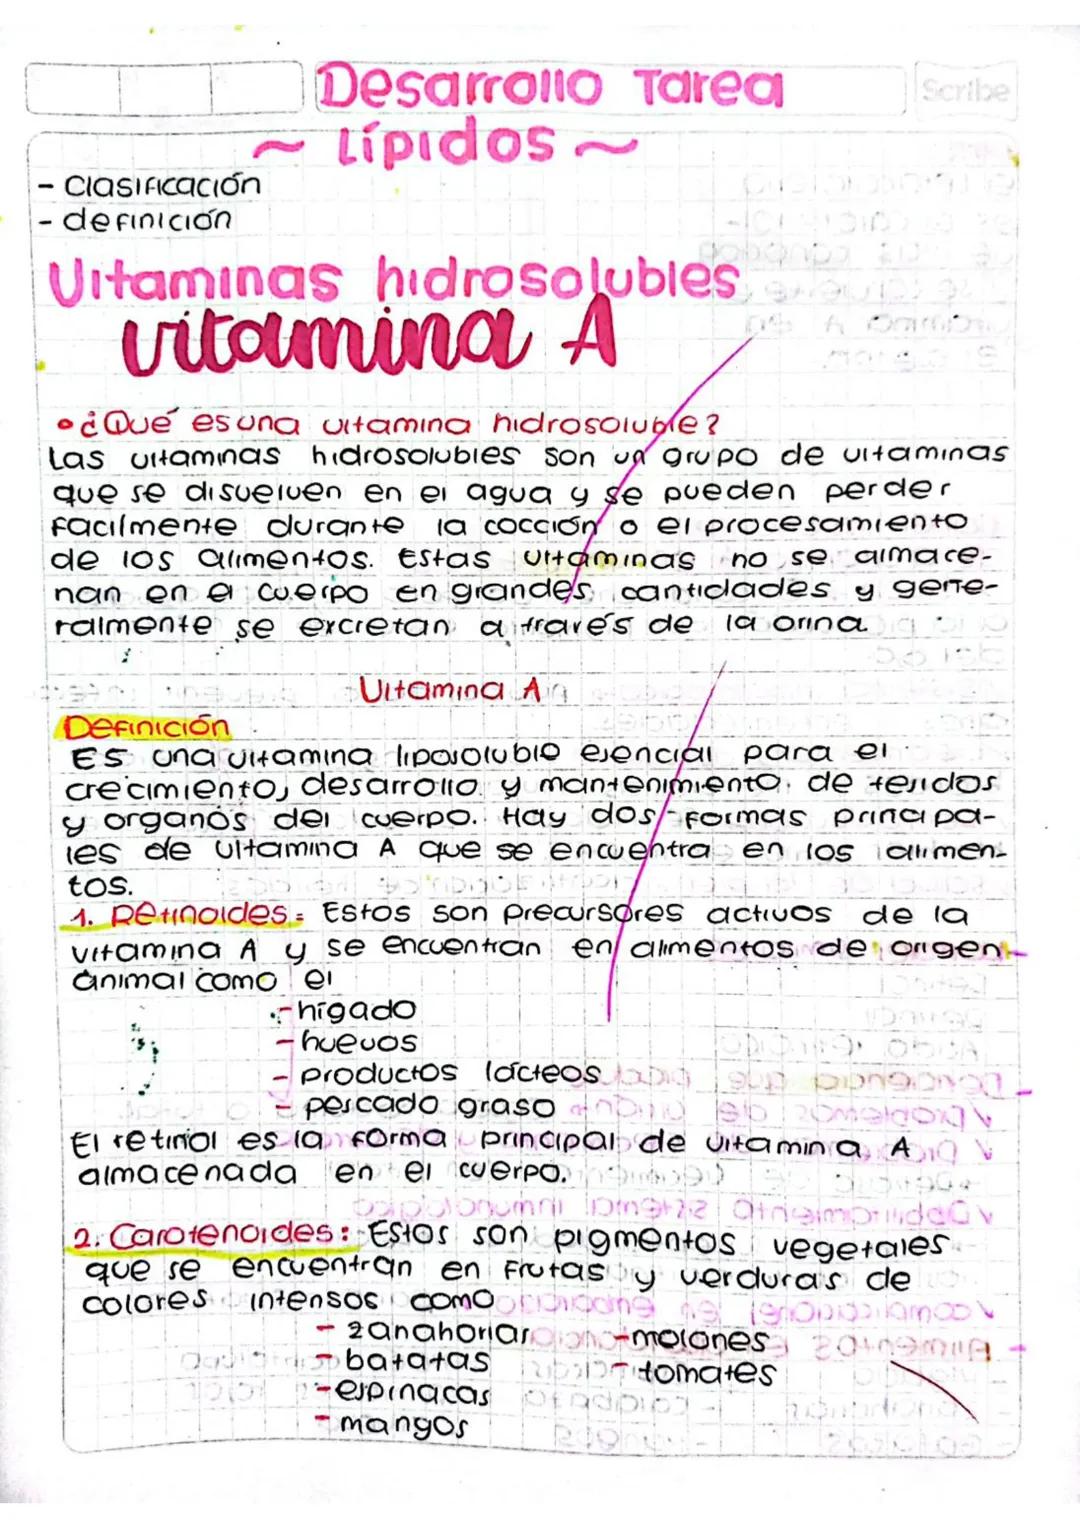 Desarrollo Tarea
Scribe
~ Lípidos ~
- Clasificación
- definición
Vitaminas hidrosolubles
vitamina A
• ¿Qué es una vitamina hidrosoluble?
Las vitaminas hidrosolubles son un grupo de vitaminas
que se disuelven en el agua y se pueden perder
facilmente durante la cocción o el procesamiento
de los alimentos. Estas vitaminas no se almace-
nan en el cuerpo en grandes cantidades y gene-
ralmente se excretan a través de la orina
Vitamina A
Definición
Es una vitamina liposoluble esencial para el
crecimiento, desarrollo y mantenimiento de tejidos
y organos del cuerpo. Hay dos formas principa-
les de vitamina A que se encuentra en los alimen-
tos.
1. Retinoides: Estos son precursores activos de la
vitamina A y se encuentran en alimentos de origen
animal como el
- hígado
- huevos
- productos lácteos
- pescado graso
El retinol es la forma principal de vitamina A
almacenada en el cuerpo.
2. Carotenoides: Estos son pigmentos vegetales
que se encuentran en frutas y verduras de
colores intensos como
- zanahorias - melones
- batatas - tomates
- espinacas
- mangos